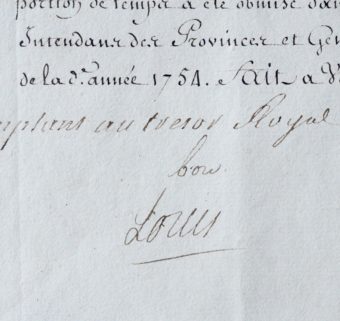 portion de temps a été obmise dan
Intendans des Provinces et Gen
de la d.e année 1754. Fait a V
mptant au tresor Royal
bon
Louis